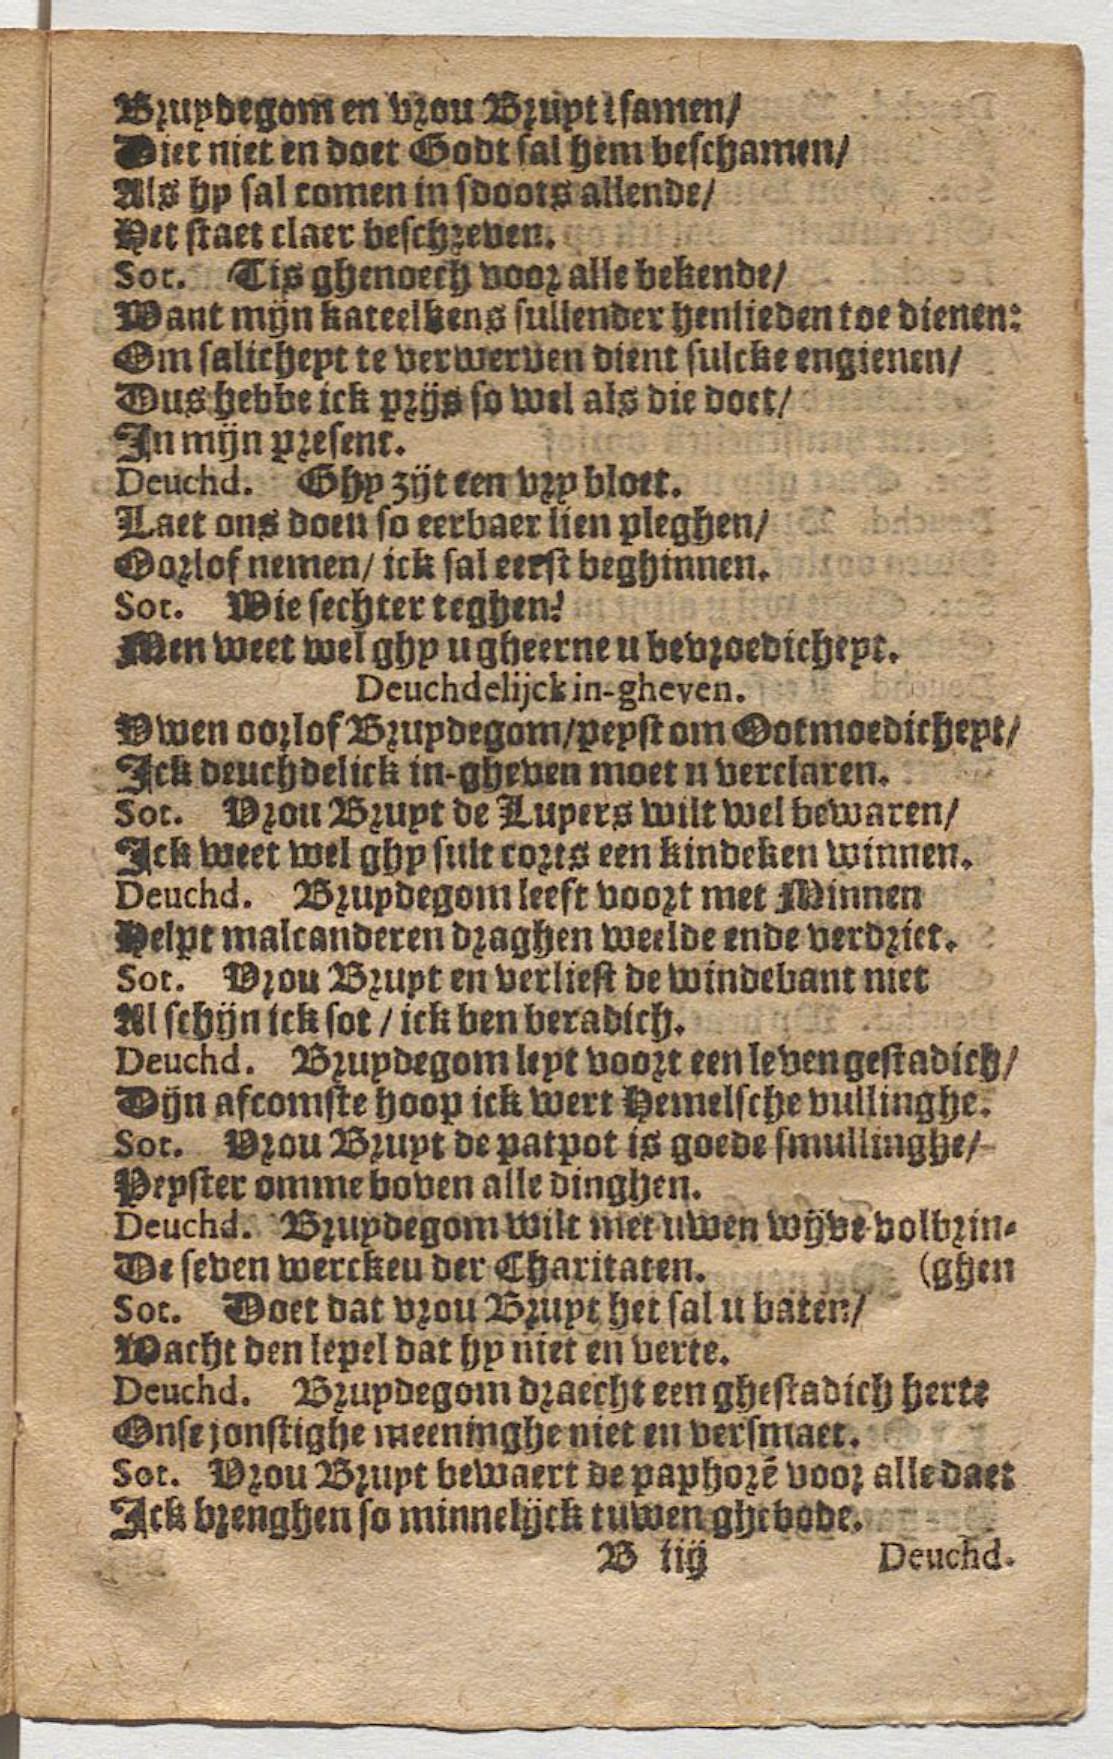 Bruydegom en vrou Bruyt tsamen/
Diet niet en doet Godt sal hem beschamen/
Als hy sal comen in sdoots allende/
Het staet claer beschreven.
Sot. Tis ghenoech voor alle bekende/
Want mijn kateelkens sullender henlieden toe dienen:
Om salicheyt te verwerven dient sulcke engienen/
Dus hebbe ick prijs so wel als die doet/
In mijn present.
Deuchd. Ghy zijt een vry bloet.
Laet ons doen so eerbaer lien pleghen/
Oorlof nemen/ ick sal eerst beghinnen.
Sot. Wie sechter teghen?
Men weet wel ghy u gheerne u bevroedicheyt.
Deuchdelijck in-gheven.
Uwen oorlof Bruydegom/peyst om Ootmoedicheyt/
Ick deuchdelick in-gheven moet u verclaren.
Sot. Vrou Bruyt de Luyers wilt wel bewaren/
Ick weet wel ghy sult corts een kindeken winnen.
Deuchd. Bruydegom leeft voort met Minnen
Helpt malcanderen draghen weelde ende verdriet.
Sot. Vrou Bruyt en verliest de windebant niet
Al schijn ick sot / ick ben beradich.
Deuchd. Bruydegom leyt voort een leven gestadich/
Dijn afcomste hoop ick wert Hemelsche vullinghe.
Sot. Vrou Bruyt de patpot is goede smullinghe/
Peyster omme boven alle dinghen.
Deuchd. Bruydegom wilt met uwen wijve volbrin-
De seven werckeu der Charitaten. (ghen
Sot. Doet dat vrou Bruyt het sal u baten/
Wacht den lepel dat hy niet en verte.
Deuchd. Bruydegom draecht een ghestadich herte
Onse jonstighe meeninghe niet en versmaet.
Sot. Vrou Bruyt bewaert de paphorē voor alle daet
Ick brenghen so minnelijck tuwen ghebode.
B iij Deuchd.